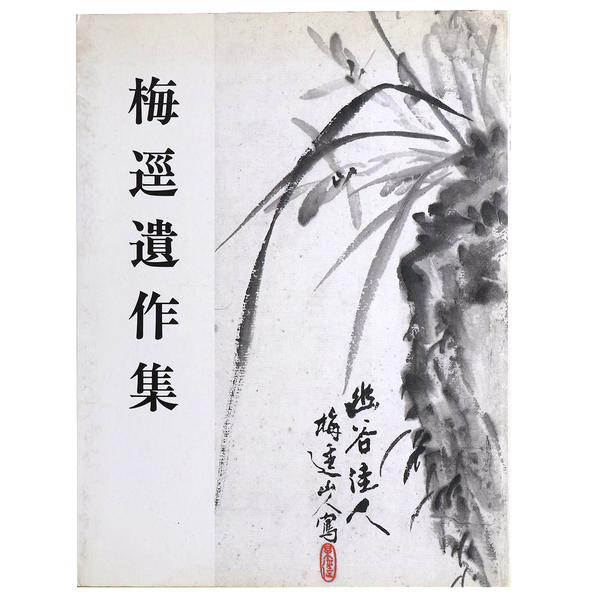 梅逕遺作集
幽谷佳人
梅逕山人寫